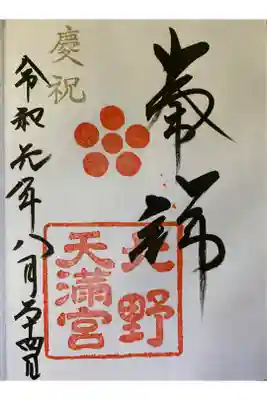 奉拝
北野
天満宮
慶祝
令和元年八月二十四日